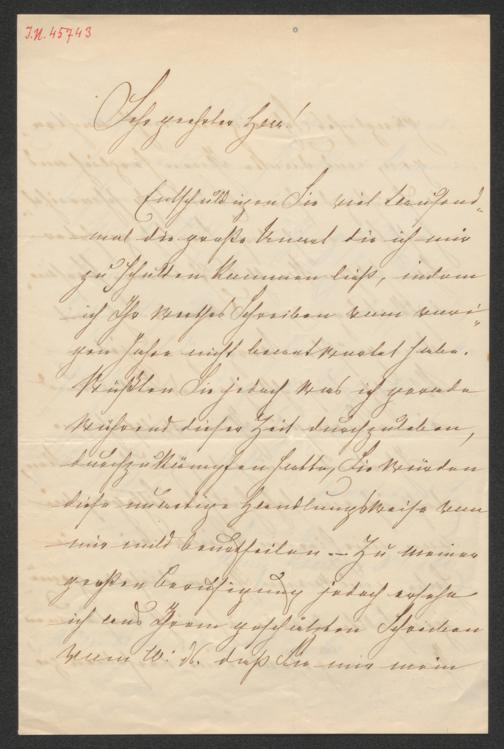 J.N. 45743
Sehr geehrter Herr!
Entschuldigen Sie viel tausend„
mal die große Unart die ich mir
zu Schulden kommen ließ, indem
ich Ihr werthes Schreiben vom vori„
gen Jahre nicht beantwortet habe.
Wüßten Sie jedoch was ich gerade
während dieser Zeit durchzuleben,
durchzukämpfen hatte, Sie würden
diese unartige Handlungsweise von
mir mild beurtheilen. — Zu meiner
großen Beruhigung jedoch ersehe
ich aus Ihrem geschätzten Schreiben
vom daß Sie mir mein